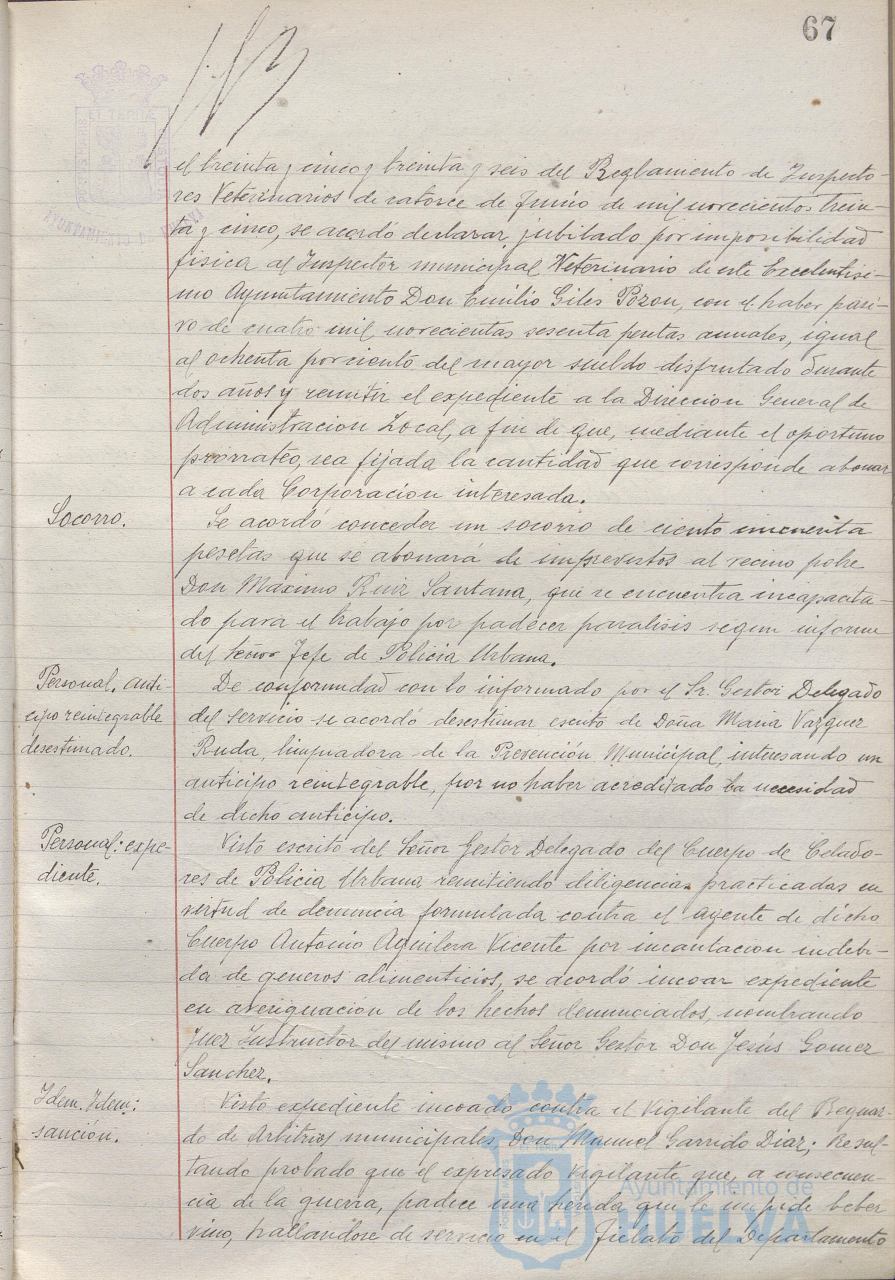 67
el treinta y cinco y treinta y seis del Reglamento de Inspecto-
res Veterinarios de catorce de Junio de mil novecientos trein-
ta y cinco, se acordó declarar jubilado por imposibilidad
fisica al Inspector municipal Veterinario de este Excelentisi-
mo Ayuntamiento Don Emilio Giles Pozon, con el haber pasi-
vo de cuatro mil novecientas sesenta pesetas anuales, igual
al ochenta por ciento del mayor sueldo disfrutado durante
dos años y remitir el expediente a la Direccion General de
Administracion Local, a fin de que, mediante el oportuno
prorrateo, sea fijada la cantidad que corresponde abonar
a cada Corporacion interesada.
Socorro.
Se acordó conceder un socorro de ciento cincuenta
pesetas que se abonará de imprevistos al vecino pobre
Don Maximo Ruiz Santana, que se encuentra incapacita-
do para el trabajo por padecer paralisis segun informe
del Señor Jefe de Policia Urbana.
Personal. anti-
cipo reintegrable
desestimado.
De conformidad con lo informado por el Sr. Gestor Delegado
del servicio se acordó desestimar escrito de Doña Maria Vazquez
Ruda, limpiadora de la Prevención Municipal, interesando un
anticipo reintegrable, por no haber acreditado la necesidad
de dicho anticipo.
Personal: expe-
diente.
Visto escrito del Señor Gestor Delegado del Cuerpo de Celado-
res de Policia Urbana remitiendo diligencias practicadas en
virtud de denuncia formulada contra el agente de dicho
Cuerpo Antonio Aguilera Vicente por incautacion indebi-
da de generos alimenticios, se acordó incoar expediente
en averiguación de los hechos denunciados, nombrando
Juez Instructor del mismo al Señor Gestor Don Jesús Gomez
Sanchez.
Idem. Idem:
sanción.
Visto expediente incoado contra el Vigilante del Resguar-
do de Arbitrios municipales Don Manuel Garrido Diaz; Resul-
tando probado que el expresado Vigilante que, a consecuen-
cia de la guerra, padece una herida que le impide beber
vino, hallandose de servicio en el Fielato del Departamento
Ayuntamiento de
HUELVA